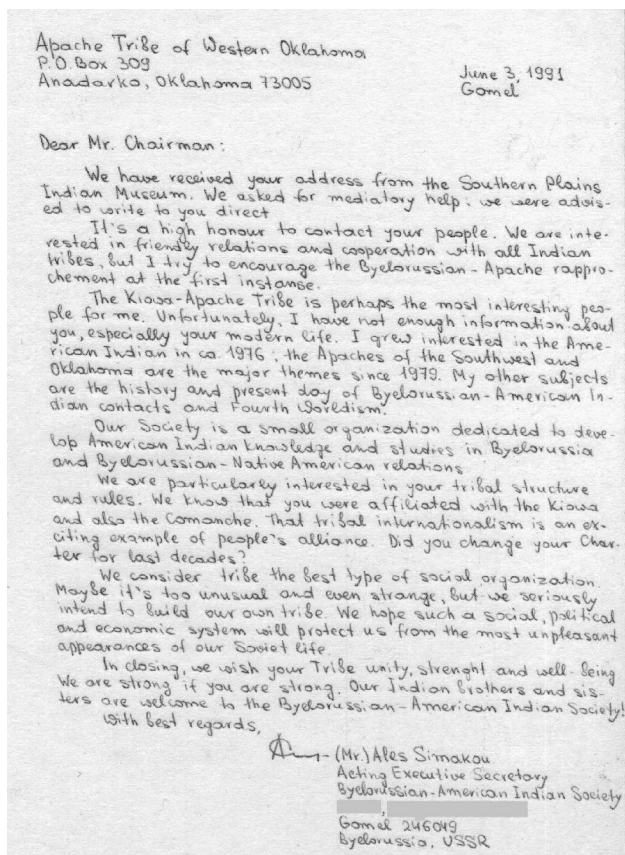 Apache Tribe of Western Oklahoma
P.O.Box 309
Anadarko, Oklahoma 73005
June 3, 1991
Gomel
Dear Mr. Chairman:
We have received your address from the Southern Plains
Indian Museum. We asked for mediatory help; we were advis-
ed to write to you direct
It's a high honour to contact your people. We are inte-
rested in friendly relations and cooperation with all Indian
tribes, but I try to encourage the Byelorussian-Apache rappro-
chement at the first instanse.
The Kiowa-Apache Tribe is perhaps the most interesting peo-
ple for me. Unfortunately, I have not enough information about
you, especially your modern life. I grew interested in the Ame-
rican Indian in ca. 1976; the Apaches of the Southwest and
Oklahoma are the major themes since 1979. My other subjects
are the history and present day of Byelorussian-American In-
dian contacts and Fourth Worldism.
Our Society is a small organization dedicated to deve-
lop American Indian knowledge and studies in Byelorussia
and Byelorussian-Native American relations
We are particularly interested in your tribal structure
and rules. We know that you were affiliated with the Kiowa
and also the Comanche. That tribal internationalism is an ex-
citing example of people's alliance. Did you change your Char-
ter for last decades?
We consider tribe the best type of social organization.
Maybe it's too unusual and even strange, but we seriously
intend to build our own tribe. We hope such a social, political
and economic system will protect us from the most unpleasant
appearances of our Soviet life.
In closing, we wish your Tribe unity, strenght and well-being
We are strong if you are strong. Our Indian brothers and sis-
ters are welcome to the Byelorussian-American Indian Society!
With best regards,
(Mr.) Ales Simakou
Acting Executive Secretary
Byelorussian-American Indian Society
Gomel 246049
Byelorussia, USSR